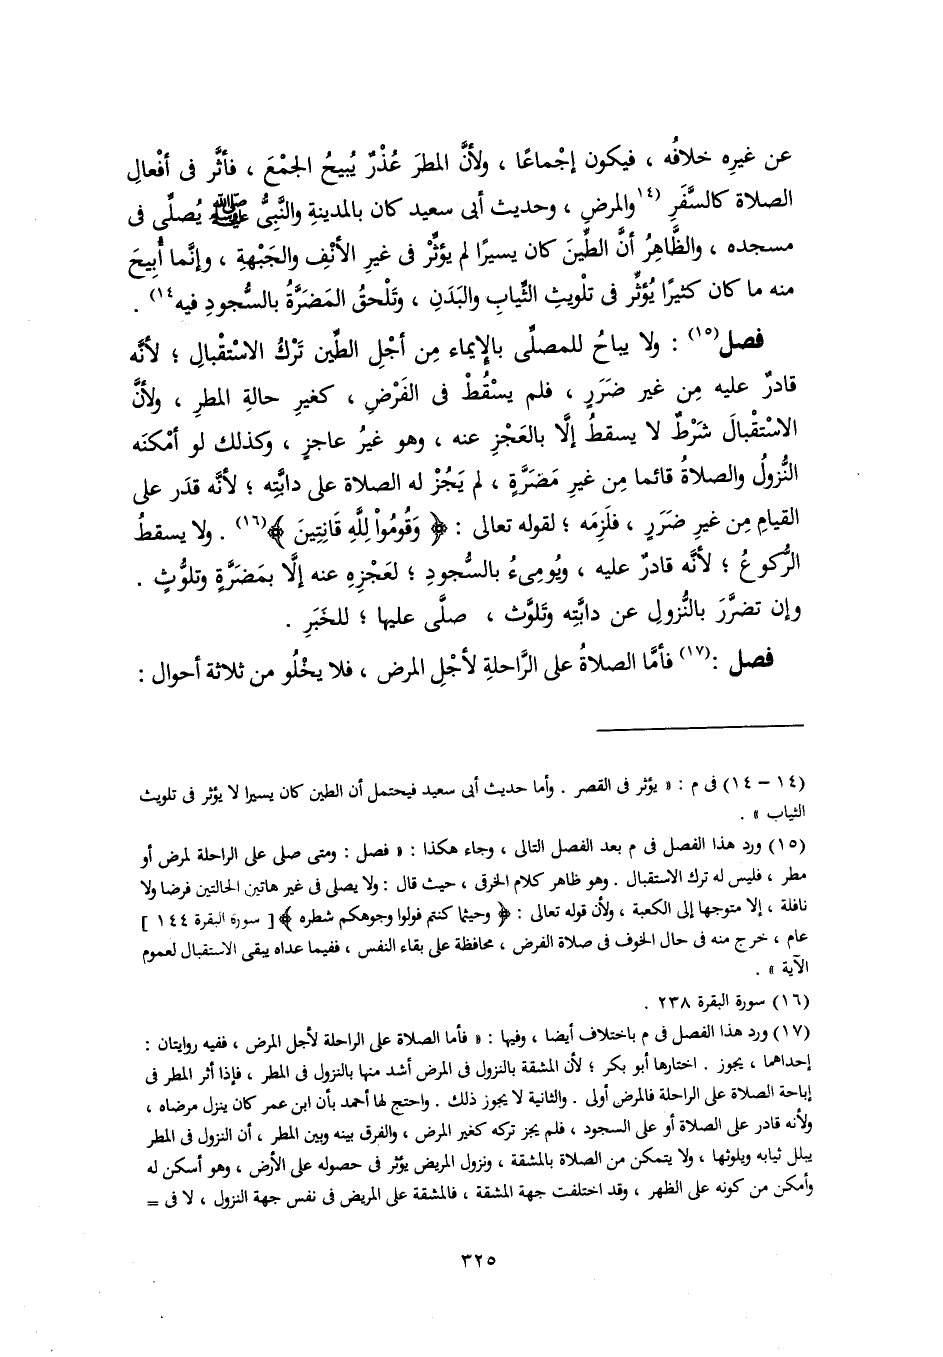 عن غيرِه خلافُه ، فيكون إجْماعًا ، ولأنَّ المطرَ عُذْرٌ يُبيحُ الجمْعَ ، فأثَّر فى أفْعالِ
الصلاة كالسَّفَرِ (١٤والمرضِ ، وحديث أبى سعيد كان بالمدينةِ والنَّبِىُّ ﷺ يُصلِّى فى
مسجده ، والظَّاهِرُ أنَّ الطِّينَ كان يسيرًا لم يؤثِّرْ فى غيرِ الأنْفِ والجَبْهةِ ، وإنَّما أُبِيحَ
منه ما كان كثيرًا يُؤثِّر فى تلويثِ الثِّيابِ والبَدَنِ ، وتَلْحقُ المَضرَّةُ بالسُّجودِ فيه١٤) .
فصل(١٥) : ولا يباحُ للمصلِّى بالإيماء مِن أجْلِ الطِّين تَرْكُ الاسْتقْبالِ ؛ لأنَّه
قادرٌ عليه مِن غير ضَرَرٍ ، فلم يسْقُطْ فى الفَرْضِ ، كغيرِ حالةِ المطرِ ، ولأنَّ
الاسْتقْبالَ شَرْطٌ لا يسقطُ إلَّا بالعَجْزِ عنه ، وهو غيرُ عاجزٍ ، وكذلك لو أمْكنَه
النُّزولُ والصلاةُ قائما مِن غيرِ مَضرَّةٍ ، لم يَجُزْ له الصلاة على دابَّتِه ؛ لأنَّه قدَر على
القيامِ مِن غيرِ ضَرَرٍ ، فلَزِمَه ؛ لقوله تعالى : ﴿ وَقُومُواْ لِلَّهِ قَانِتِينَ ﴾(١٦) . ولا يسقطُ
الرُّكوعُ ؛ لأنَّه قادرٌ عليه ، ويُومِىءُ بالسُّجودِ ؛ لعَجْزِه عنه إلَّا بمَضرَّةٍ وتلوُّثٍ .
وإن تضرَّرَ بالنُّزولِ عن دابَّتِه وتَلوَّث ، صلَّى عليها ؛ للخَبَرِ .
فصل :(١٧) فأمَّا الصلاةُ على الرَّاحلةِ لأجْلِ المرض ، فلا يخْلُو من ثلاثة أحوال :
(١٤ – ١٤) فى م : « يؤثر فى القصر . وأما حديث أبى سعيد فيحتمل أن الطين كان يسيرا لا يؤثر فى تلويث
الثياب » .
(١٥) ورد هذا الفصل فى م بعد الفصل التالى ، وجاء هكذا : « فصل : ومتى صلى على الراحلة لمرض أو
مطر ، فليس له ترك الاستقبال . وهو ظاهر كلام الخرقى ، حيث قال : ولا يصلى فى غير هاتين الحالتين فرضا ولا
نافلة ، إلا متوجها إلى الكعبة ، ولأن قوله تعالى : ﴿ وحيثما كنتم فولوا وجوهكم شطره ﴾ [ سورة البقرة ١٤٤ ]
عام ، خرج منه فى حال الخوف فى صلاة الفرض ، محافظة على بقاء النفس ، ففيما عداه يبقى الاستقبال لعموم
الآية » .
(١٦) سورة البقرة ٢٣٨ .
(١٧) ورد هذا الفصل فى م باختلاف أيضا ، وفيها : « فأما الصلاة على الراحلة لأجل المرض ، ففيه روايتان :
إحداهما ، يجوز . اختارها أبو بكر ؛ لأن المشقة بالنزول فى المرض أشد منها بالنزول فى المطر ، فإذا أثر المطر فى
إباحة الصلاة على الراحلة فالمرض أولى . والثانية لا يجوز ذلك . واحتج لها أحمد بأن ابن عمر كان ينزل مرضاه ،
ولأنه قادر على الصلاة أو على السجود ، فلم يجز تركه كغير المرض ، والفرق بينه وبين المطر ، أن النزول فى المطر
يبلل ثيابه ويلوثها ، ولا يتمكن من الصلاة بالمشقة ، ونزول المريض يؤثر فى حصوله على الأرض ، وهو أسكن له
وأمكن من كونه على الظهر ، وقد اختلفت جهة المشقة ، فالمشقة على المريض فى نفس جهة النزول ، لا فى =
٣٢٥